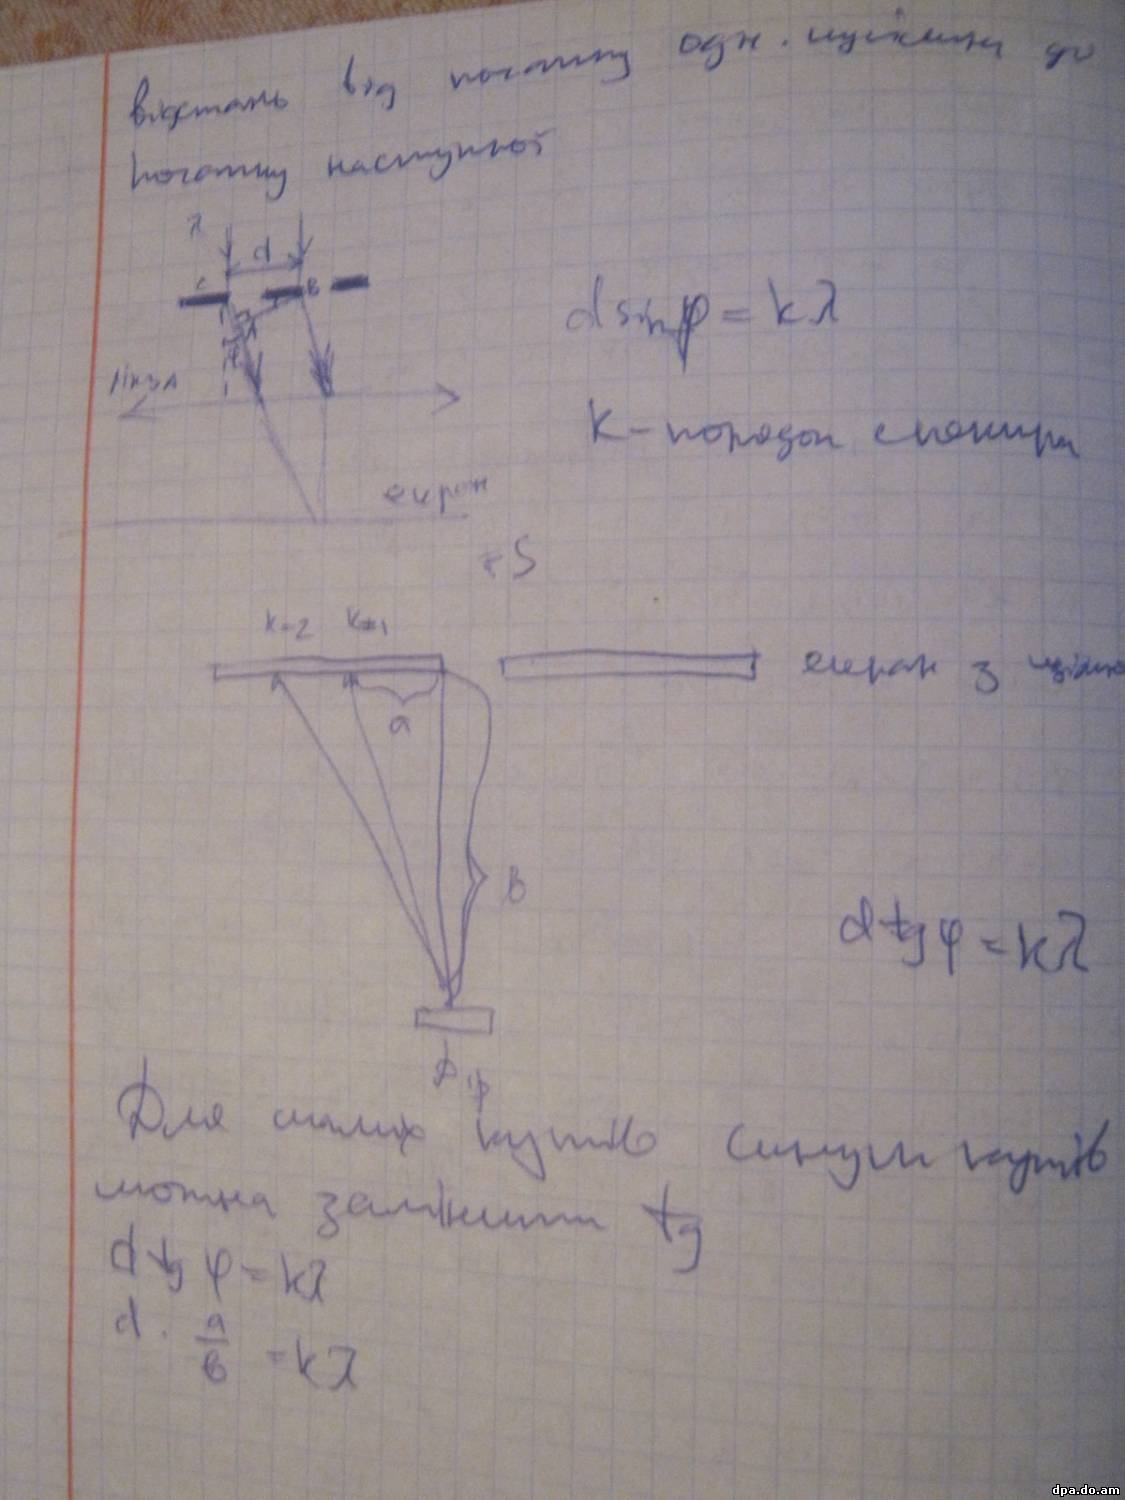 відстань від початку одн. щілини до
початку наступної
λ
d
C
B
d sin φ = kλ
лінза
k - порядок спектра
екран
S
k=2 k=1
екран з щілин
a
B
d tg φ = kλ
Д гр
Для малих кутів синуси кутів
можна замінити tg
d tg φ = kλ
d · a/в = kλ
dpa.do.am